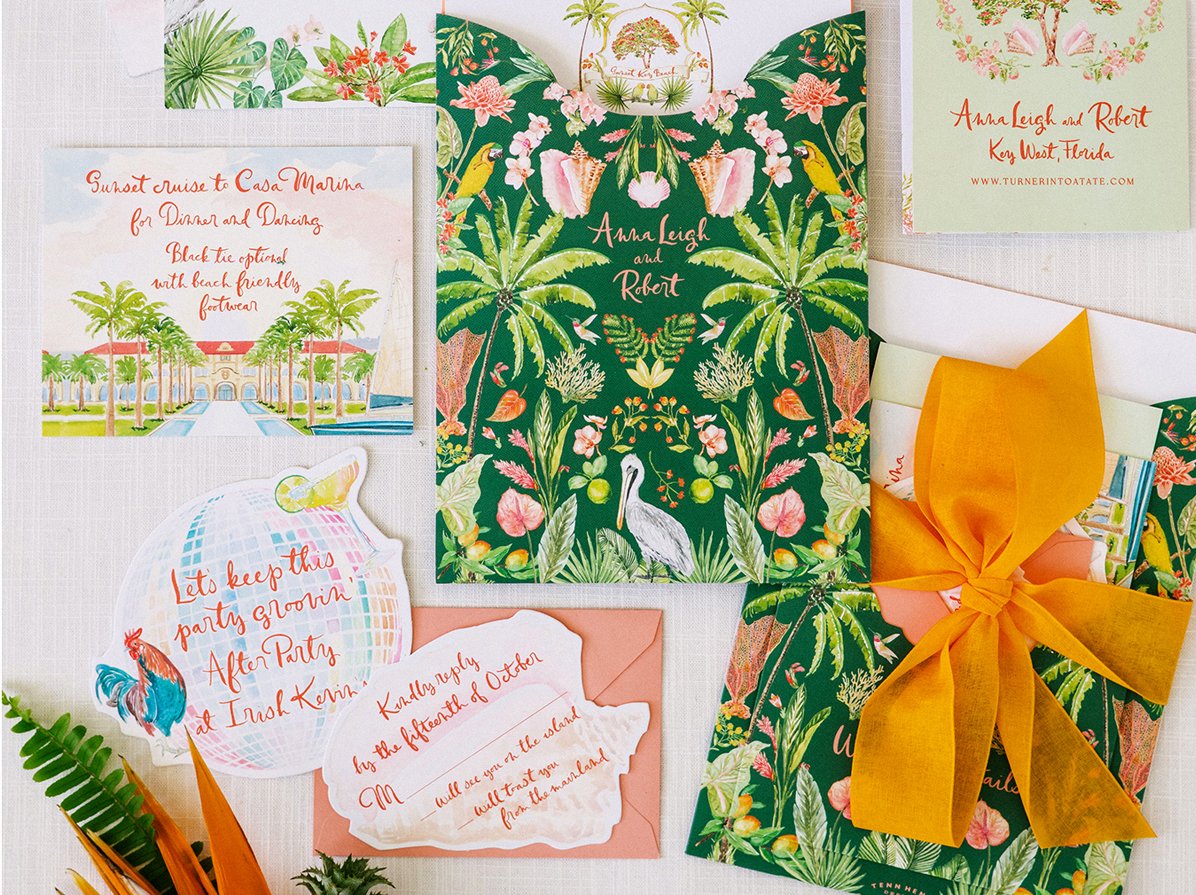 Sunset Key Beach
Anna Leigh
and
Robert
Anna Leigh and Robert
Key West, Florida
WWW.TURNERINTOATATE.COM
Sunset cruise to Casa Marina
for Dinner and Dancing
Black tie optional
with beach friendly
footwear
Lets keep this
party groovin'
After Party
at Irish Kevin
Kindly reply
by the fifteenth of October
M
will see you on the island
will toast you
from the mainland
TENN HEN